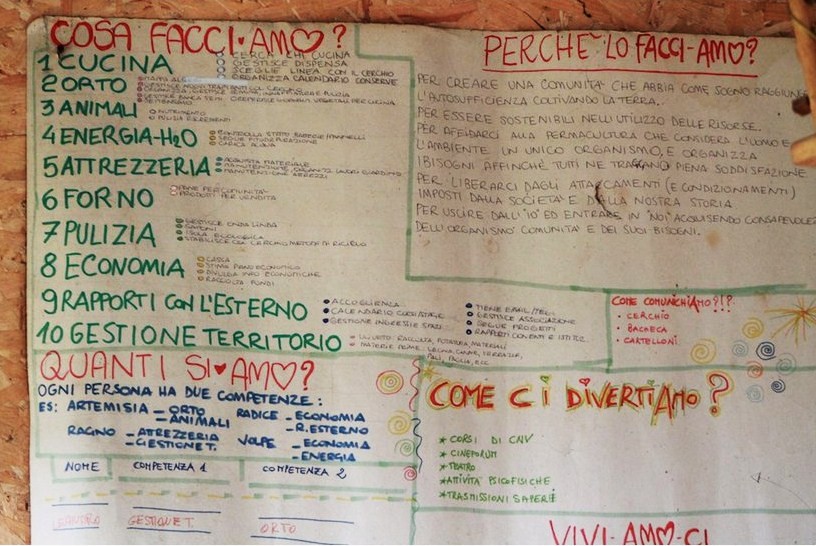 COSA FACCI·AMO?
1 CUCINA
CERCA CHI CUCINA
GESTISCE DISPENSA
SCEGLIE LINEA CON IL CERCHIO
ORGANIZZA CALENDARIO CONSERVE
2 ORTO
3 ANIMALI
NUTRIMENTO
PULIZIA
4 ENERGIA-H2O
CONTROLLA STATO BATTERIE PANNELLI
CARICA ACQUA
5 ATTREZZERIA
ACQUISTA MATERIALE
MANUTENZIONE
MANUTENZIONE ATTREZZI
6 FORNO
PANE PER COMUNITA'
PRODOTTI PER VENDITA
7 PULIZIA
GESTISCE ONDA LINDA
SAPONI
ISOLA ECOLOGICA
STABILISCE CON CERCHIO METODI DI RICICLO
8 ECONOMIA
CASSA
STIMA PIANO ECONOMICO
DIVULGA INFO ECONOMICHE
RACCOLTA FONDI
9 RAPPORTI CON L'ESTERNO
ACCOGLIENZA
CALENDARIO
GESTIONE INGRESSI E SPAZI
TIENE EMAIL/TEL.
GESTISCE ASSOCIAZIONE
SEGUE PROGETTI
RAPPORTI CON ENTI E ISTITUZ.
10 GESTIONE TERRITORIO
ULIVETO: RACCOLTA, POTATURA, MATERIALI
MATERIE PRIME: LEGNA, CANNE, TERRA,
PALI, PAGLIA, ETC
PERCHE' LO FACCI-AMO?
PER CREARE UNA COMUNITA' CHE ABBIA COME SOGNO RAGGIUNGE
L'AUTOSUFFICIENZA COLTIVANDO LA TERRA.
PER ESSERE SOSTENIBILI NELL'UTILIZZO DELLE RISORSE.
PER AFFIDARCI ALLA PERMACULTURA CHE CONSIDERA L'UOMO E
L'AMBIENTE UN UNICO ORGANISMO, E ORGANIZZA
I BISOGNI AFFINCHÈ TUTTI NE TRAGGANO PIENA SODDISFAZIONE
PER LIBERARCI DAGLI ATTACCAMENTI (E CONDIZIONAMENTI)
IMPOSTI DALLA SOCIETA' E DALLA NOSTRA STORIA
PER USCIRE DALL'"IO" ED ENTRARE IN "NOI" ACQUISENDO CONSAPEVOLEZ
DELL'ORGANISMO COMUNITA' E DEI SUOI BISOGNI.
COME COMUNICHIAMO?!?
CERCHIO
BACHECA
CARTELLONI
QUANTI SI·AMO?
OGNI PERSONA HA DUE COMPETENZE:
ES: ARTEMISIA - ORTO
- ANIMALI
RADICE - ECONOMIA
- R. ESTERNO
RAGNO - ATREZZERIA
- GESTIONE T.
VOLPE - ECONOMIA
- ENERGIA
NOME COMPETENZA 1 COMPETENZA 2
LEANDRO GESTIONE T. ORTO
COME CI DIVERTIAMO?
* CORSI DI CNV
* CINEFORUM
* TEATRO
* ATTIVITÀ PSICOFISICHE
* TRASMISSIONI SAPERI
VIVI-AMO-CI